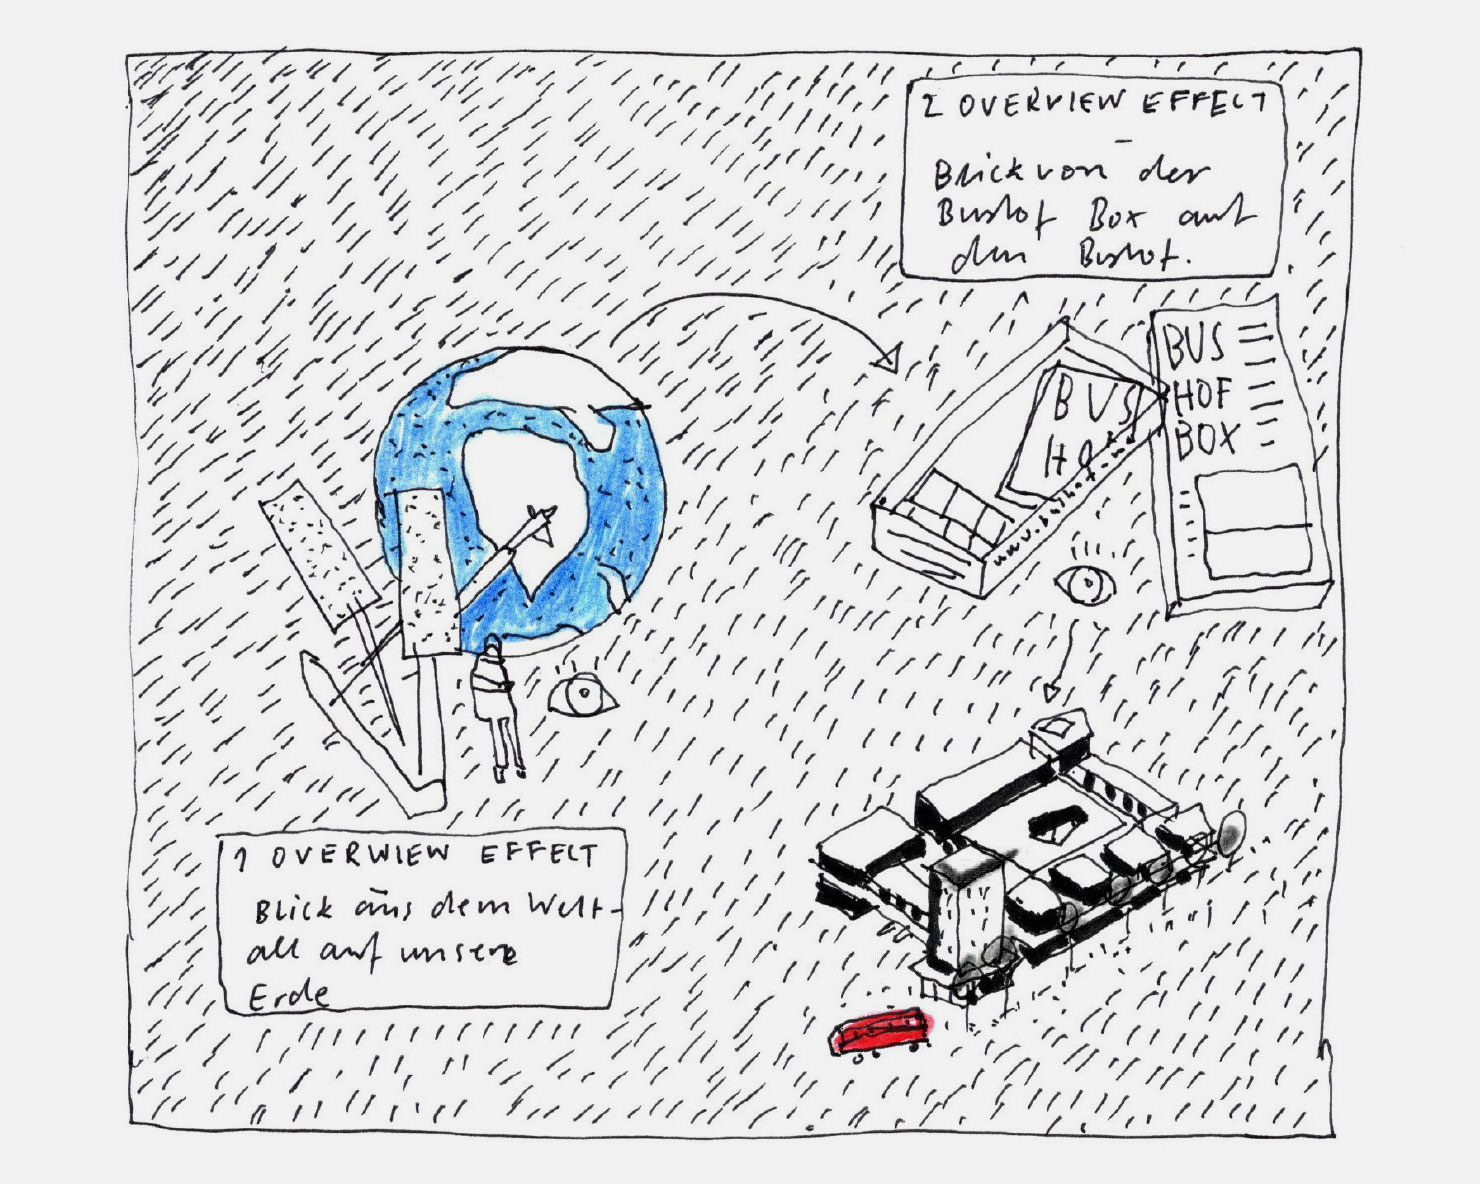 2 OVERVIEW EFFECT
–
Blick von der
Bushof Box auf
den Bushof.
BUS
HOF
BOX
BUS
HO
1 OVERWIEW EFFECT
Blick aus dem Welt-
all auf unsere
Erde